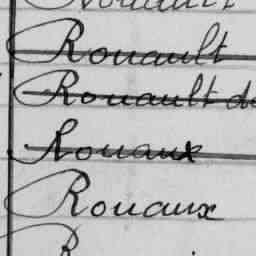 Rouault
Rouault de
Rouaux
Rouaux